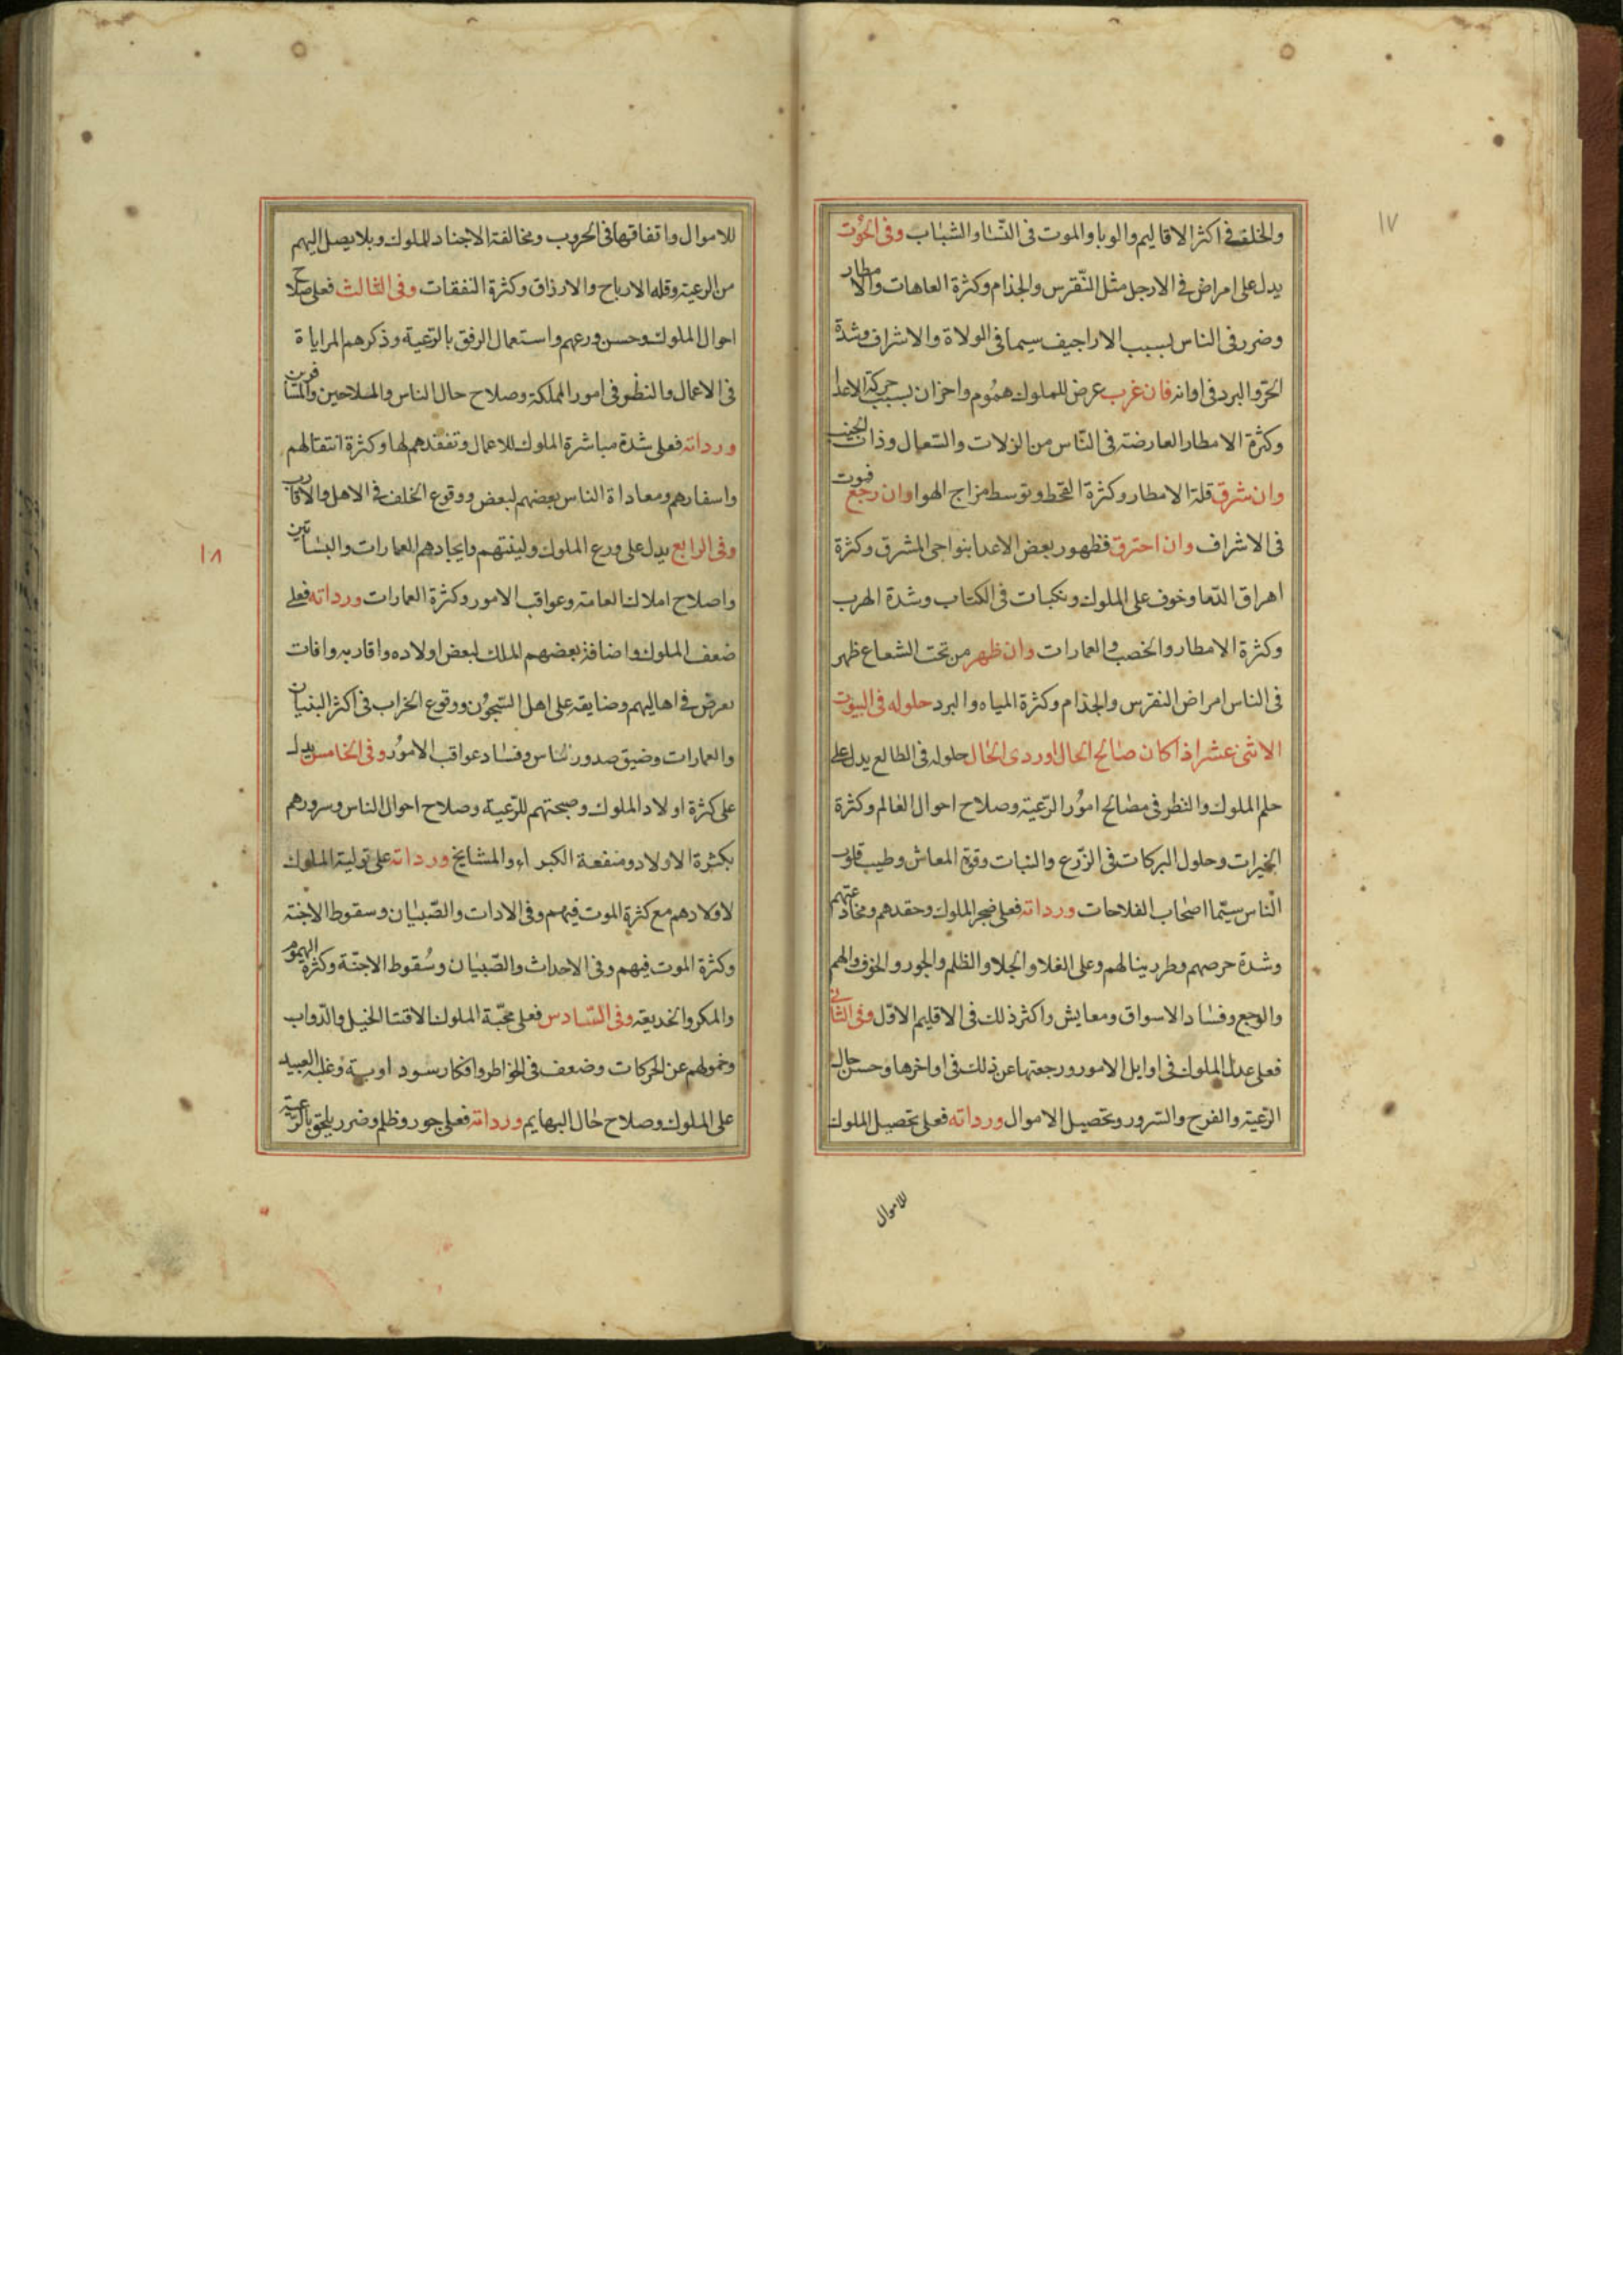 ١٧
والخلف فى اكثر الاقاليم والوبا والموت فى النّسا والشباب وفى الحُوت
يدل على امراض فى الارجل مثل النّقرس والجذام وكثرة العاهات والامطار
وضرر فى الناس بسبب الاراجيف سيما فى الولاة والاشراف وشدة
الحرّ والبرد فى اوانه فان غرب عرض للملوك همُوم واحزان بسبب حركة الاعدا
وكثرة الامطار العارضة فى النّاس من الزلات والسّعال وذات الجنب
وان شرق قلة الامطار وكثرة القحط وتوسط مزاج الهوا وان رجع فموت
فى الاشراف وان احترق فظهور بعض الاعدا بنواحى المشرق وكثرة
اهراق الدّما وخوف على الملوك ونكبات فى الكتاب وشدة الهرب
وكثرة الامطار والخصب والعمارات وان ظهر من تحت الشعاع ظهر
فى الناس امراض النقرس والجذام وكثرة المياه والبرد حلوله فى البيوت
الاثنى عشر اذا كان صالح الحال او ردى الحال حلوله فى الطالع يدل على
حلم الملوك والنظر فى مصالح امُور الرّعية وصلاح احوال العالم وكثرة
الخيرات وحلول البركات فى الزّرع والنبات وقوة المعاش وطيب قلوب
النّاس سيّما اصحاب الفلاحات ورداته فعلى ضجر الملوك وحقدهم ومخادعتهم
وشدة حرصهم وطرد ينالهم وعلى الغلا والجلا والظلم والجور والخوف والهم
والوجع وفساد الاسواق ومعايش واكثر ذلك فى الاقليم الاوّل وفى الثانى
فعلى عدل الملوك فى اوايل الامور ورجعتها عن ذلك فى اواخرها وحسن حال
الرّعية والفرح والسّرور وتحصيل الاموال ورداته فعلى تحصيل الملوك
للاموال
للاموال واتفاقها فى الحروب ومخالفة الاجناد للملوك وبلا يصل اليهم
من الرعية وقله الارباح والارزاق وكثرة النفقات وفى الثالث فعلى صلاح
احوال الملوك وحسن ورعهم واستعمال الرفق بالرّعية وذكرهم المراياة
فى الاعمال والنظر فى امور المملكة وصلاح حال الناس والملاحين والمسافرين
ورداته فعلى شدة مباشرة الملوك للاعمال وتفقدهم لها وكثرة انتقالهم
واسفارهم ومعاداة الناس بعضهم لبعض ووقوع الخلف فى الاهل والاقارب
وفى الرابع يدل على ورع الملوك ولينتهم وايجادهم العمارات والبساتين
١٨
واصلاح املاك العامة وعواقب الامور وكثرة العمارات ورداته فعلى
ضعف الملوك واضافة بعضهم الملك لبعض اولاده واقاربه وافات
تعرض فى اهاليهم وضايقة على اهل السّجُون ووقوع الخراب فى اكثر البنيان
والعمارات وضيق صدور الناس وفساد عواقب الامُور وفى الخامس يدل
على كثرة اولاد الملوك وصحبتهم للرّعية وصلاح احوال الناس وسرورهم
بكثرة الاولاد ومنفعة الكبراء والمشايخ ورداته على تولية الملوك
لاولادهم مع كثرة الموت فيهم وفى الادات والصّبيان وسقوط الاجنة
وكثرة الموت فيهم وفى الاحداث والصّبيان وسُقوط الاجنّة وكثرة الهموم
والمكر والخديعة وفى السّادس فعلى محبّة الملوك الاقتنا الخيل والدّواب
وخمولهم عن الحركات وضعف فى الخواطر وافكار سود اوية وغلبه العبيد
على الملوك وصلاح حال البهايم ورداته فعلى جور وظلم وضرر يلحق بالرّعية